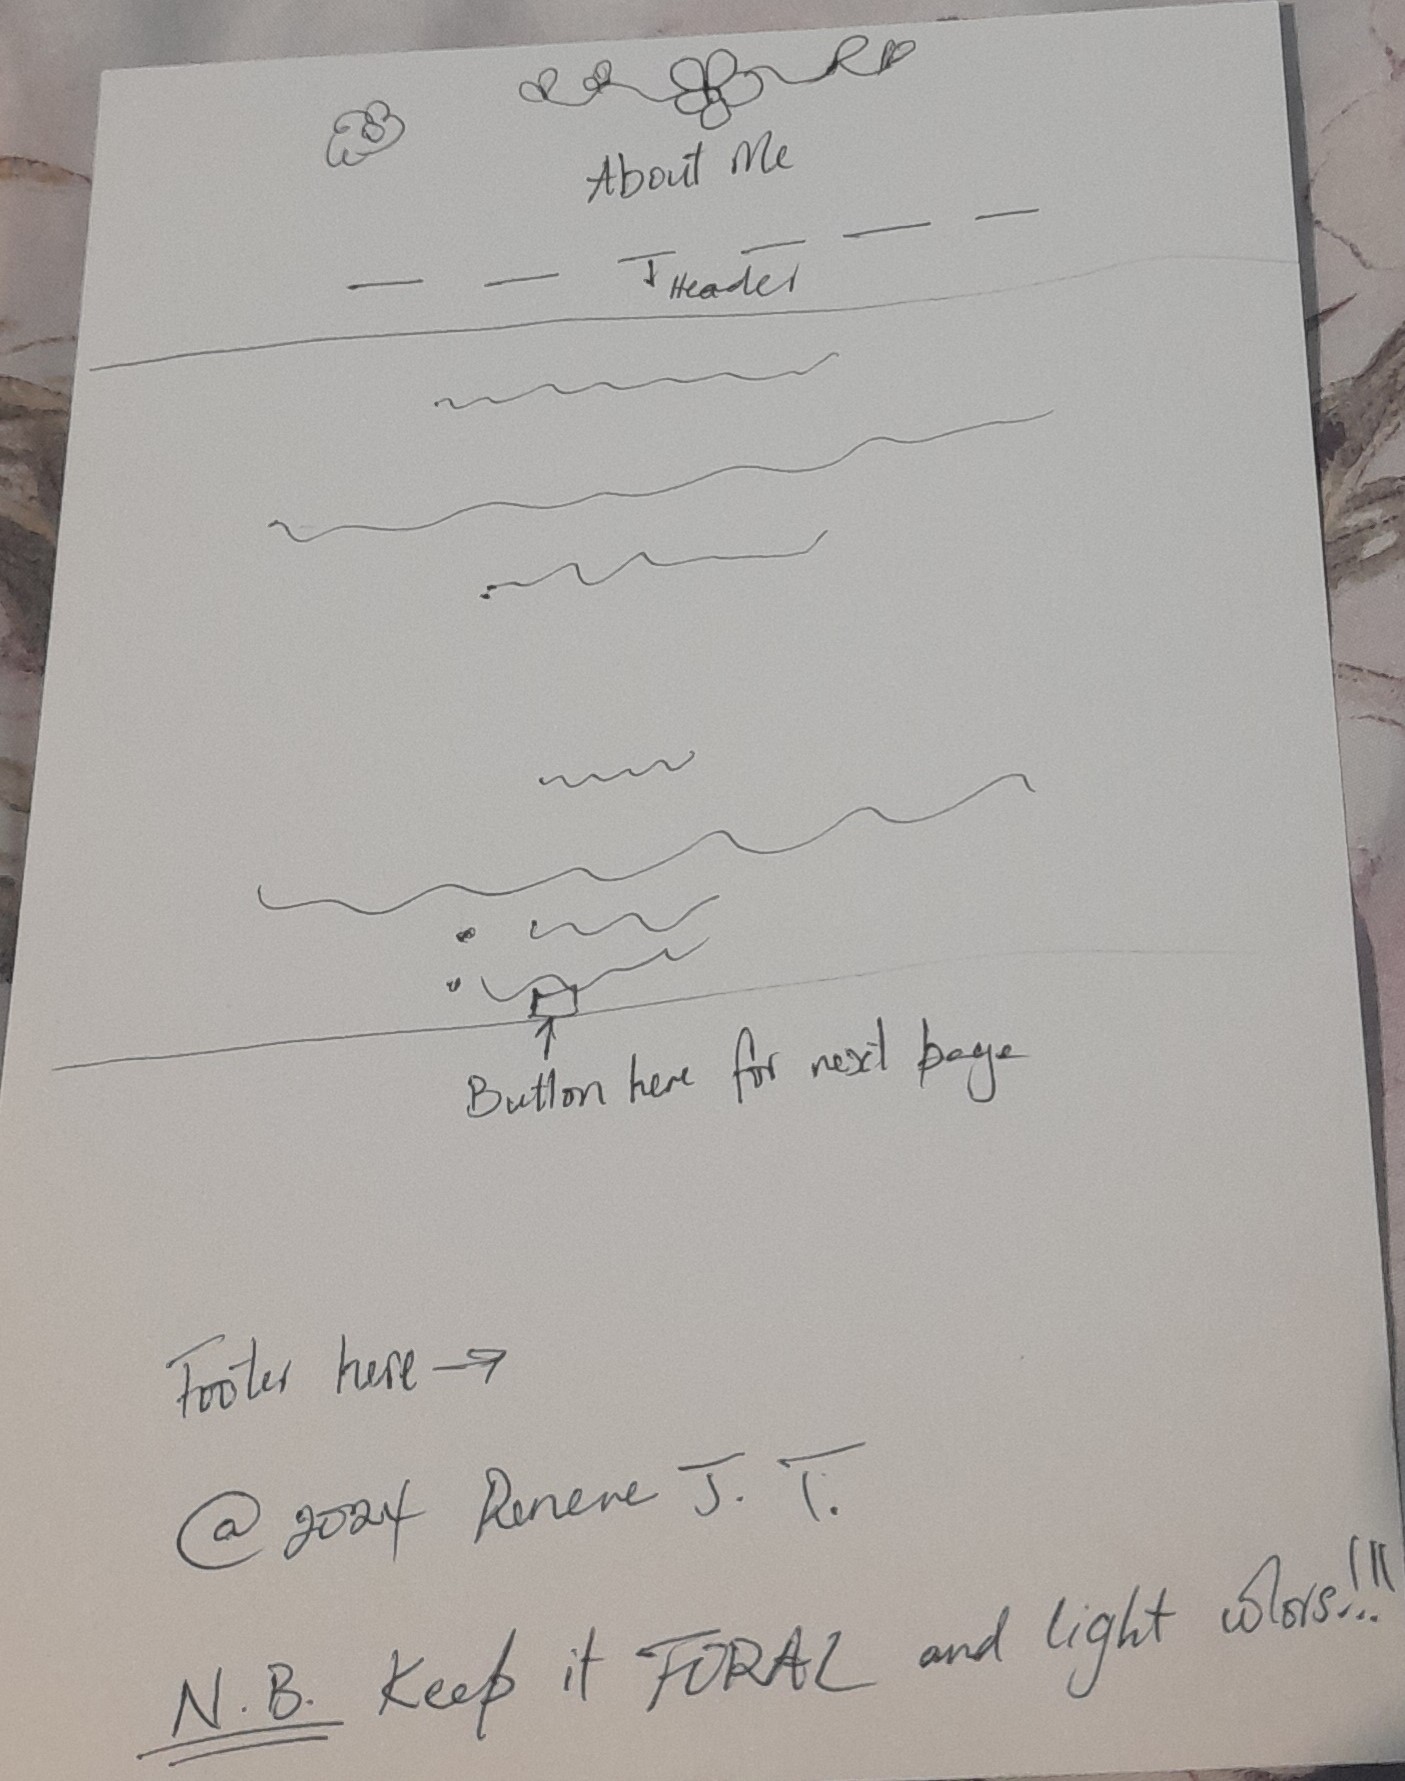 About Me
Header
Button here for next page
Footer here →
@ 2024 Renene J. T.
N.B. Keep it FORAL and light colors!!!